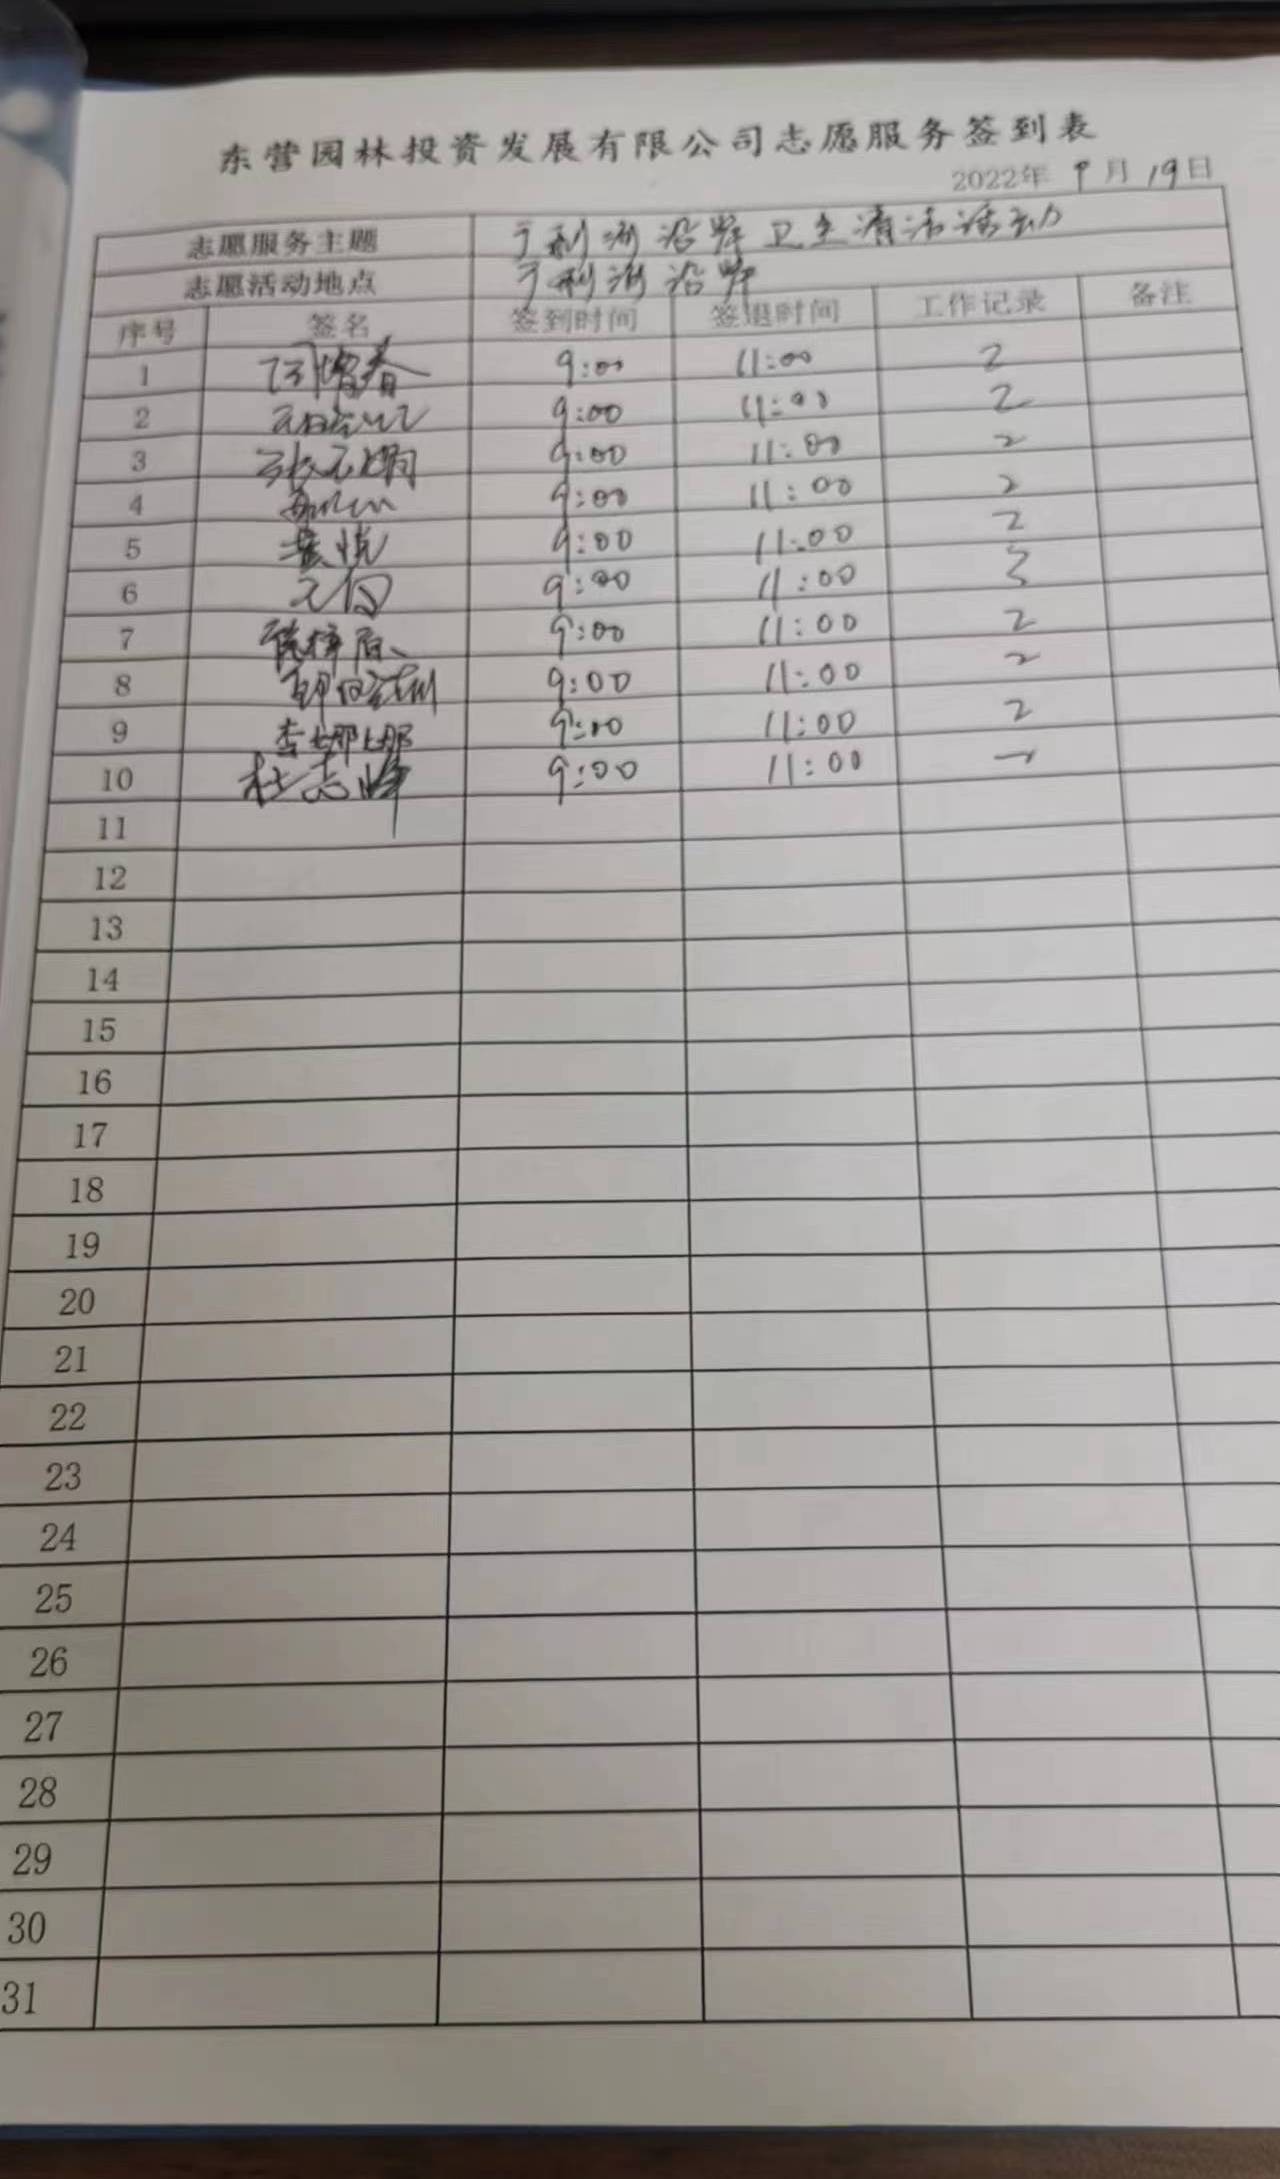 东营园林投资发展有限公司志愿服务签到表
2022年 9 月 19 日
志愿服务主题 广利河沿岸卫生清洁活动
志愿活动地点 广利河沿岸
序号 签名 签到时间 签退时间 工作记录 备注
1 9:00 11:00 2
2 9:00 11:00 2
3 9:00 11:00 2
4 9:00 11:00 2
5 9:00 11:00 2
6 9:00 11:00
7 9:00 11:00 2
8 9:00 11:00 2
9 李娜娜 9:00 11:00 2
10 杜志峰 9:00 11:00
11
12
13
14
15
16
17
18
19
20
21
22
23
24
25
26
27
28
29
30
31